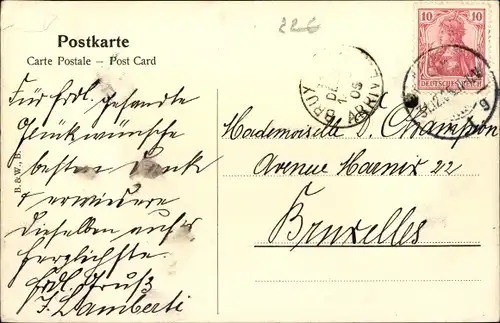 226
Postkarte
Carte Postale – Post Card
Für frdl. gesandte
Glückwünsche
besten Dank
& erwiedere
dieselben auf's
herzlichste.
Frdl. Gruß
J. Lamberti
B. & W., B.
10 10
DEUTSCHES REICH
BRUX
ARRIVEE
Mademoiselle J. Champion
Avenue Marnix 22
Bruxelles